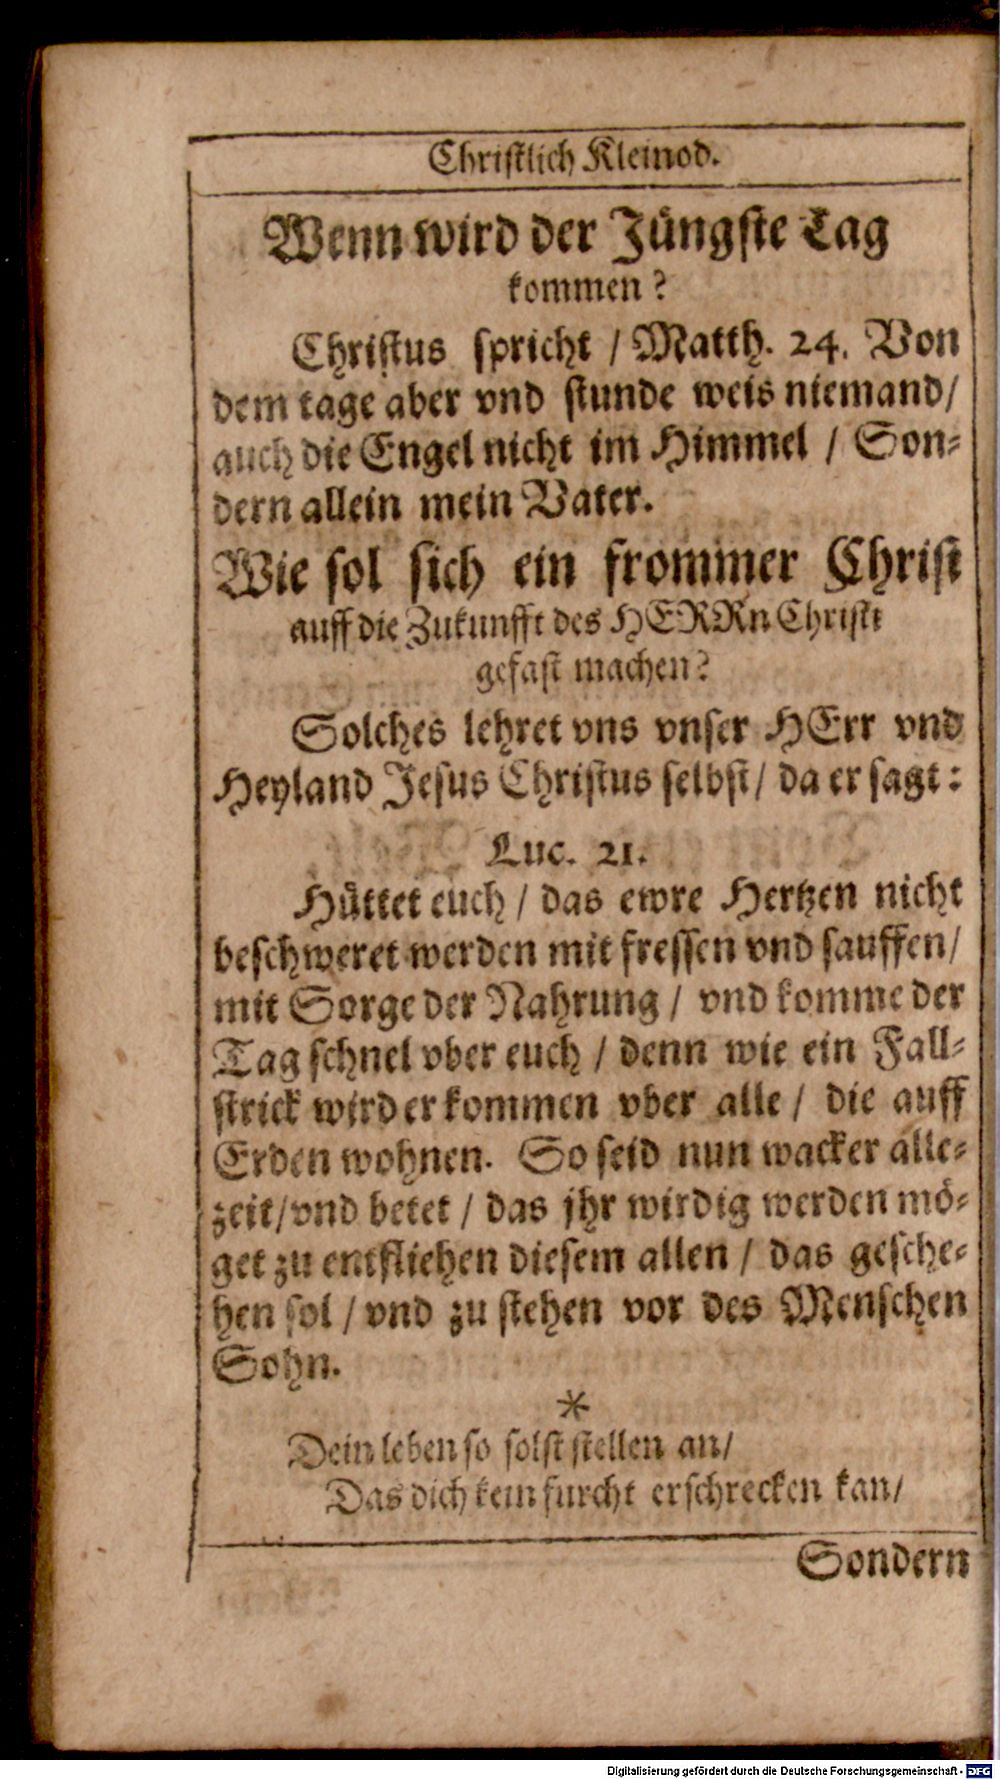 Christlich Kleinod.
Wenn wird der Jüngste Tag
kommen?
Christus spricht / Matth. 24. Von
dem tage aber vnd stunde weis niemand/
auch die Engel nicht im Himmel / Son-
dern allein mein Vater.
Wie sol sich ein frommer Christ
auff die Zukunfft des HERRn Christi
gefast machen?
Solches lehret vns vnser HErr vnd
Heyland Jesus Christus selbst/ da er sagt:
Luc. 21.
Hüttet euch / das ewre Hertzen nicht
beschweret werden mit fressen vnd sauffen/
mit Sorge der Nahrung / vnd komme der
Tag schnel vber euch / denn wie ein Fall-
strick wird er kommen vber alle / die auff
Erden wohnen. So seid nun wacker alle-
zeit/vnd betet / das jhr wirdig werden mö-
get zu entfliehen diesem allen / das gesche-
hen sol / vnd zu stehen vor des Menschen
Sohn.
*
Dein leben so solst stellen an/
Das dich kein furcht erschrecken kan/
Sondern
Digitalisierung gefördert durch die Deutsche Forschungsgemeinschaft - DFG